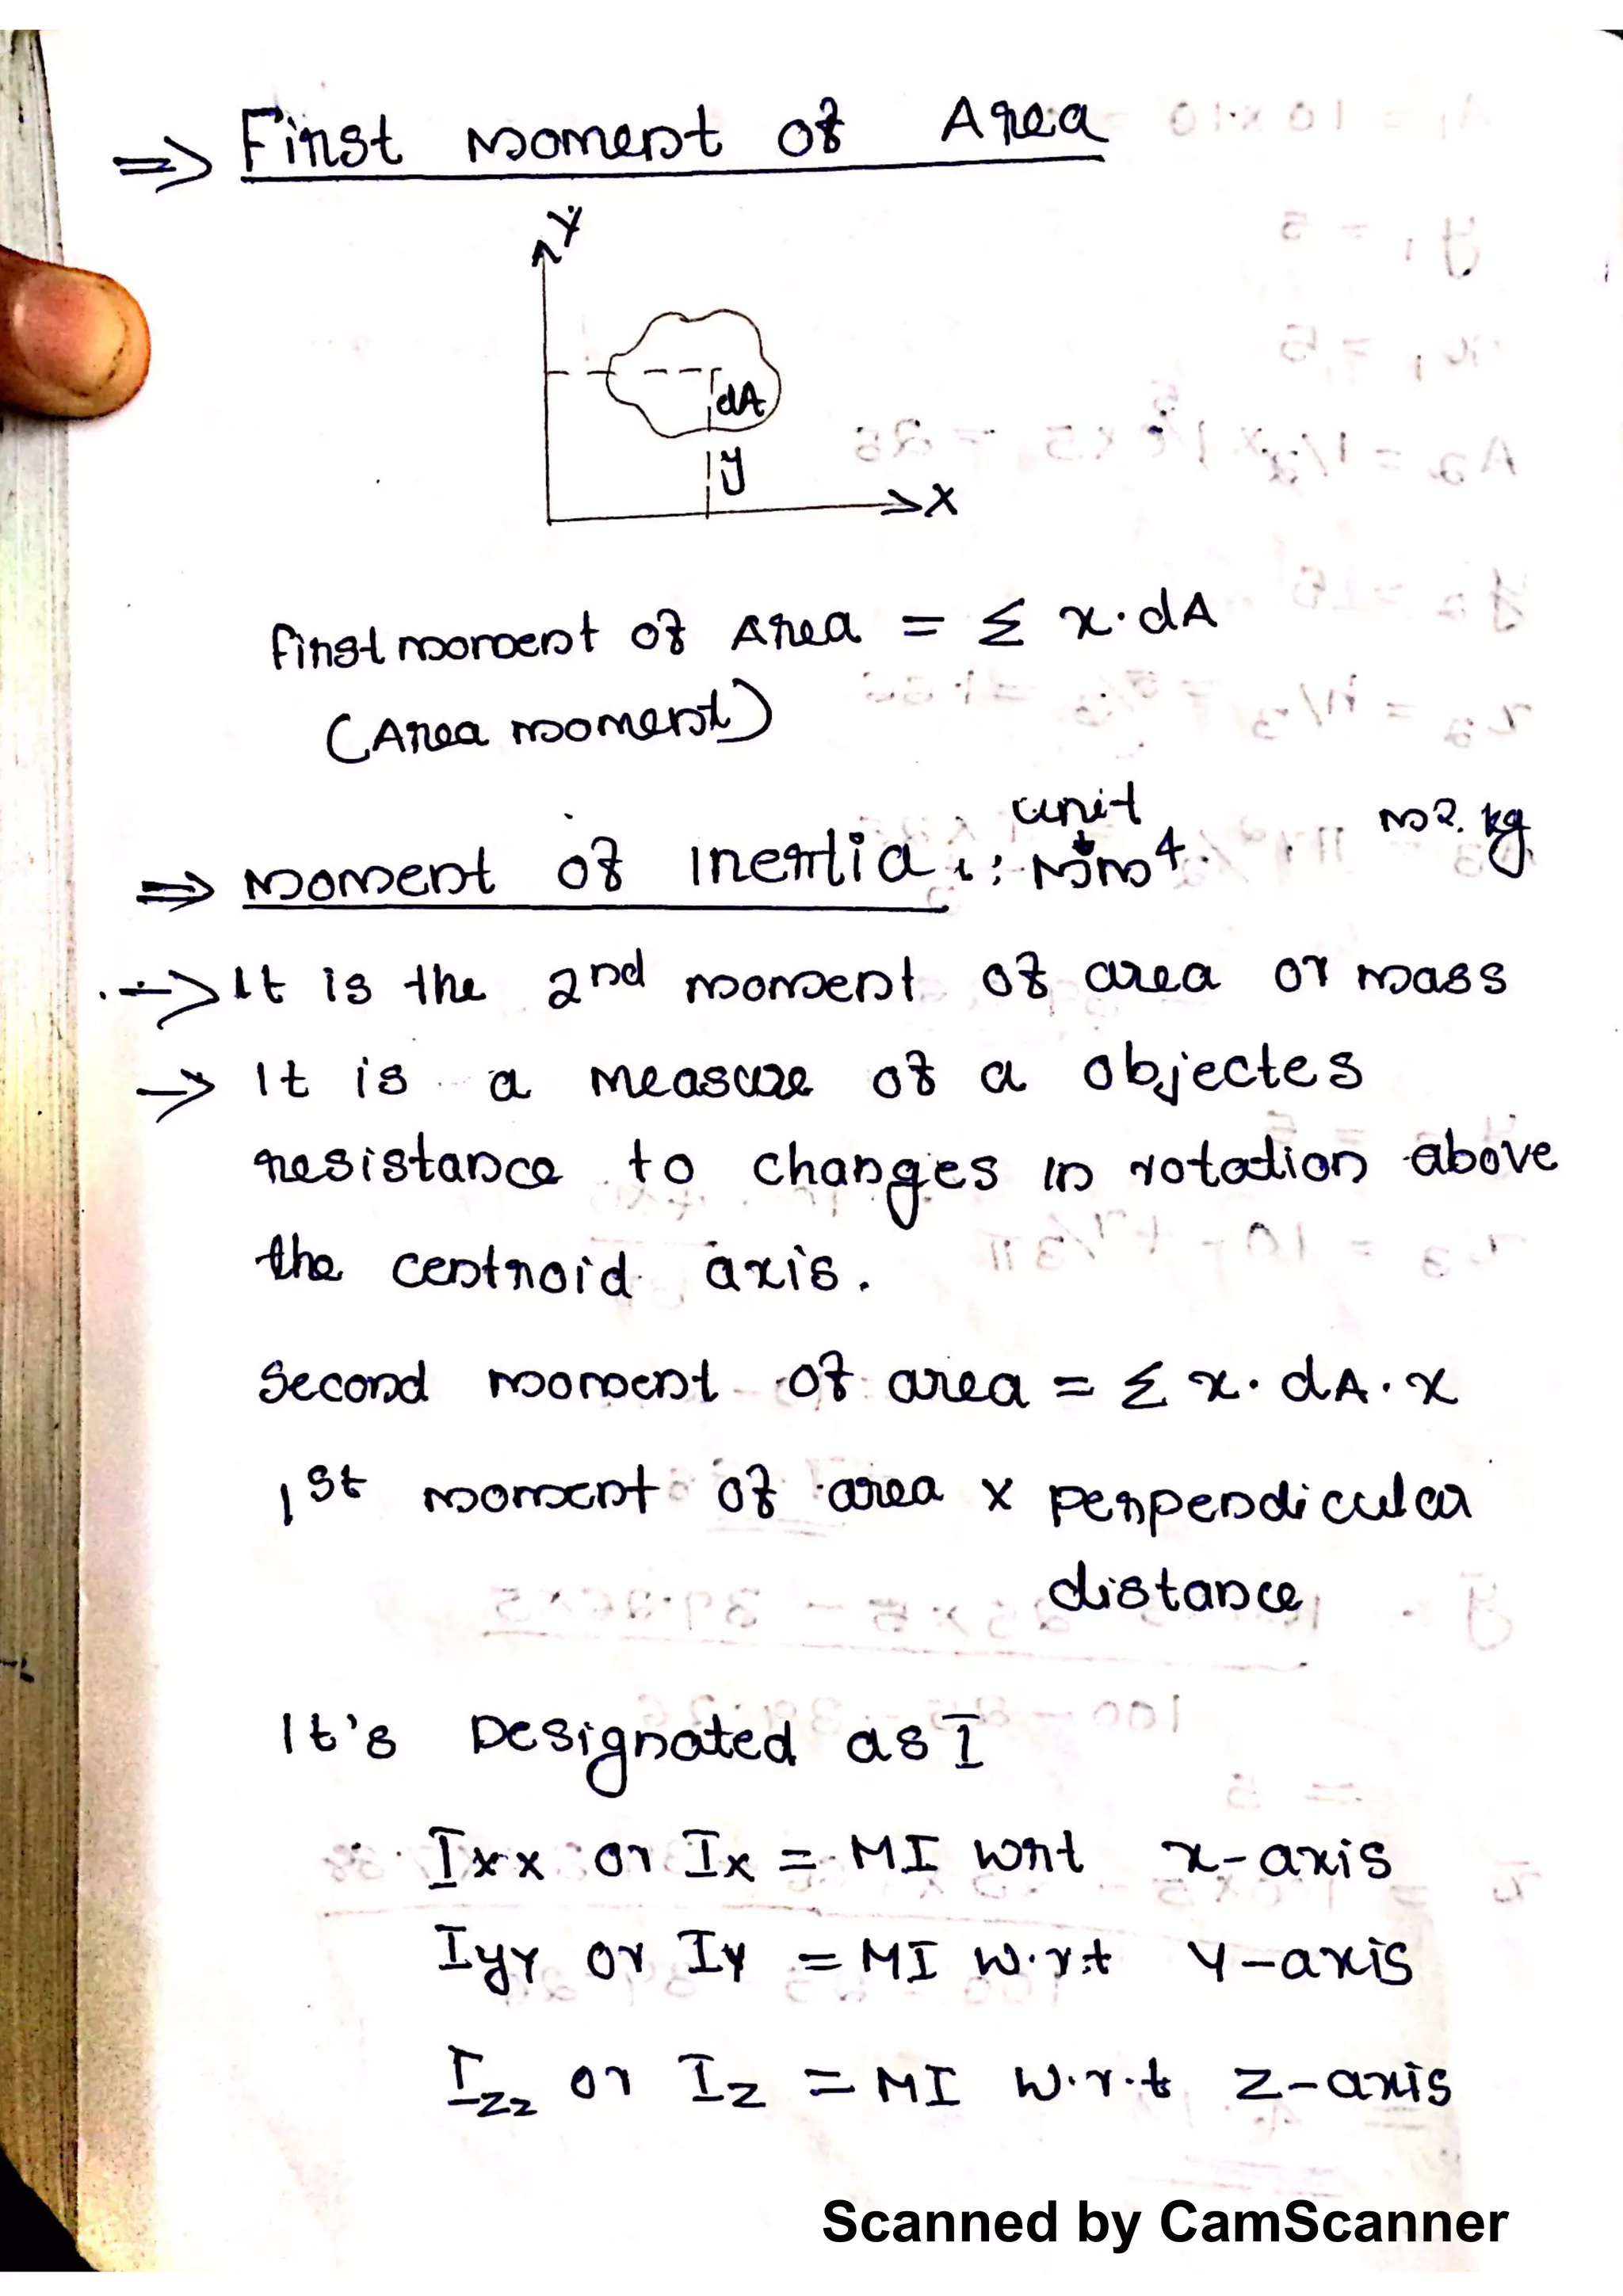 ⇒ First Moment of Area
Y
dA
y
X
First moment of Area = Σ x·dA
(Area moment)
unit
⇒ Moment of Inertia : mm⁴ m². kg
→ It is the 2nd moment of area or mass
→ It is a measure of a objectes
resistance to changes in rotation above
the centroid axis.
Second moment of area = Σ x·dA·x
1st moment of area x perpendicular
distance
It's Designated as I
Ixx or Ix = MI wrt x-axis
Iyy or Iy = MI w.r.t y-axis
Izz or Iz = MI w.r.t z-axis
Scanned by CamScanner